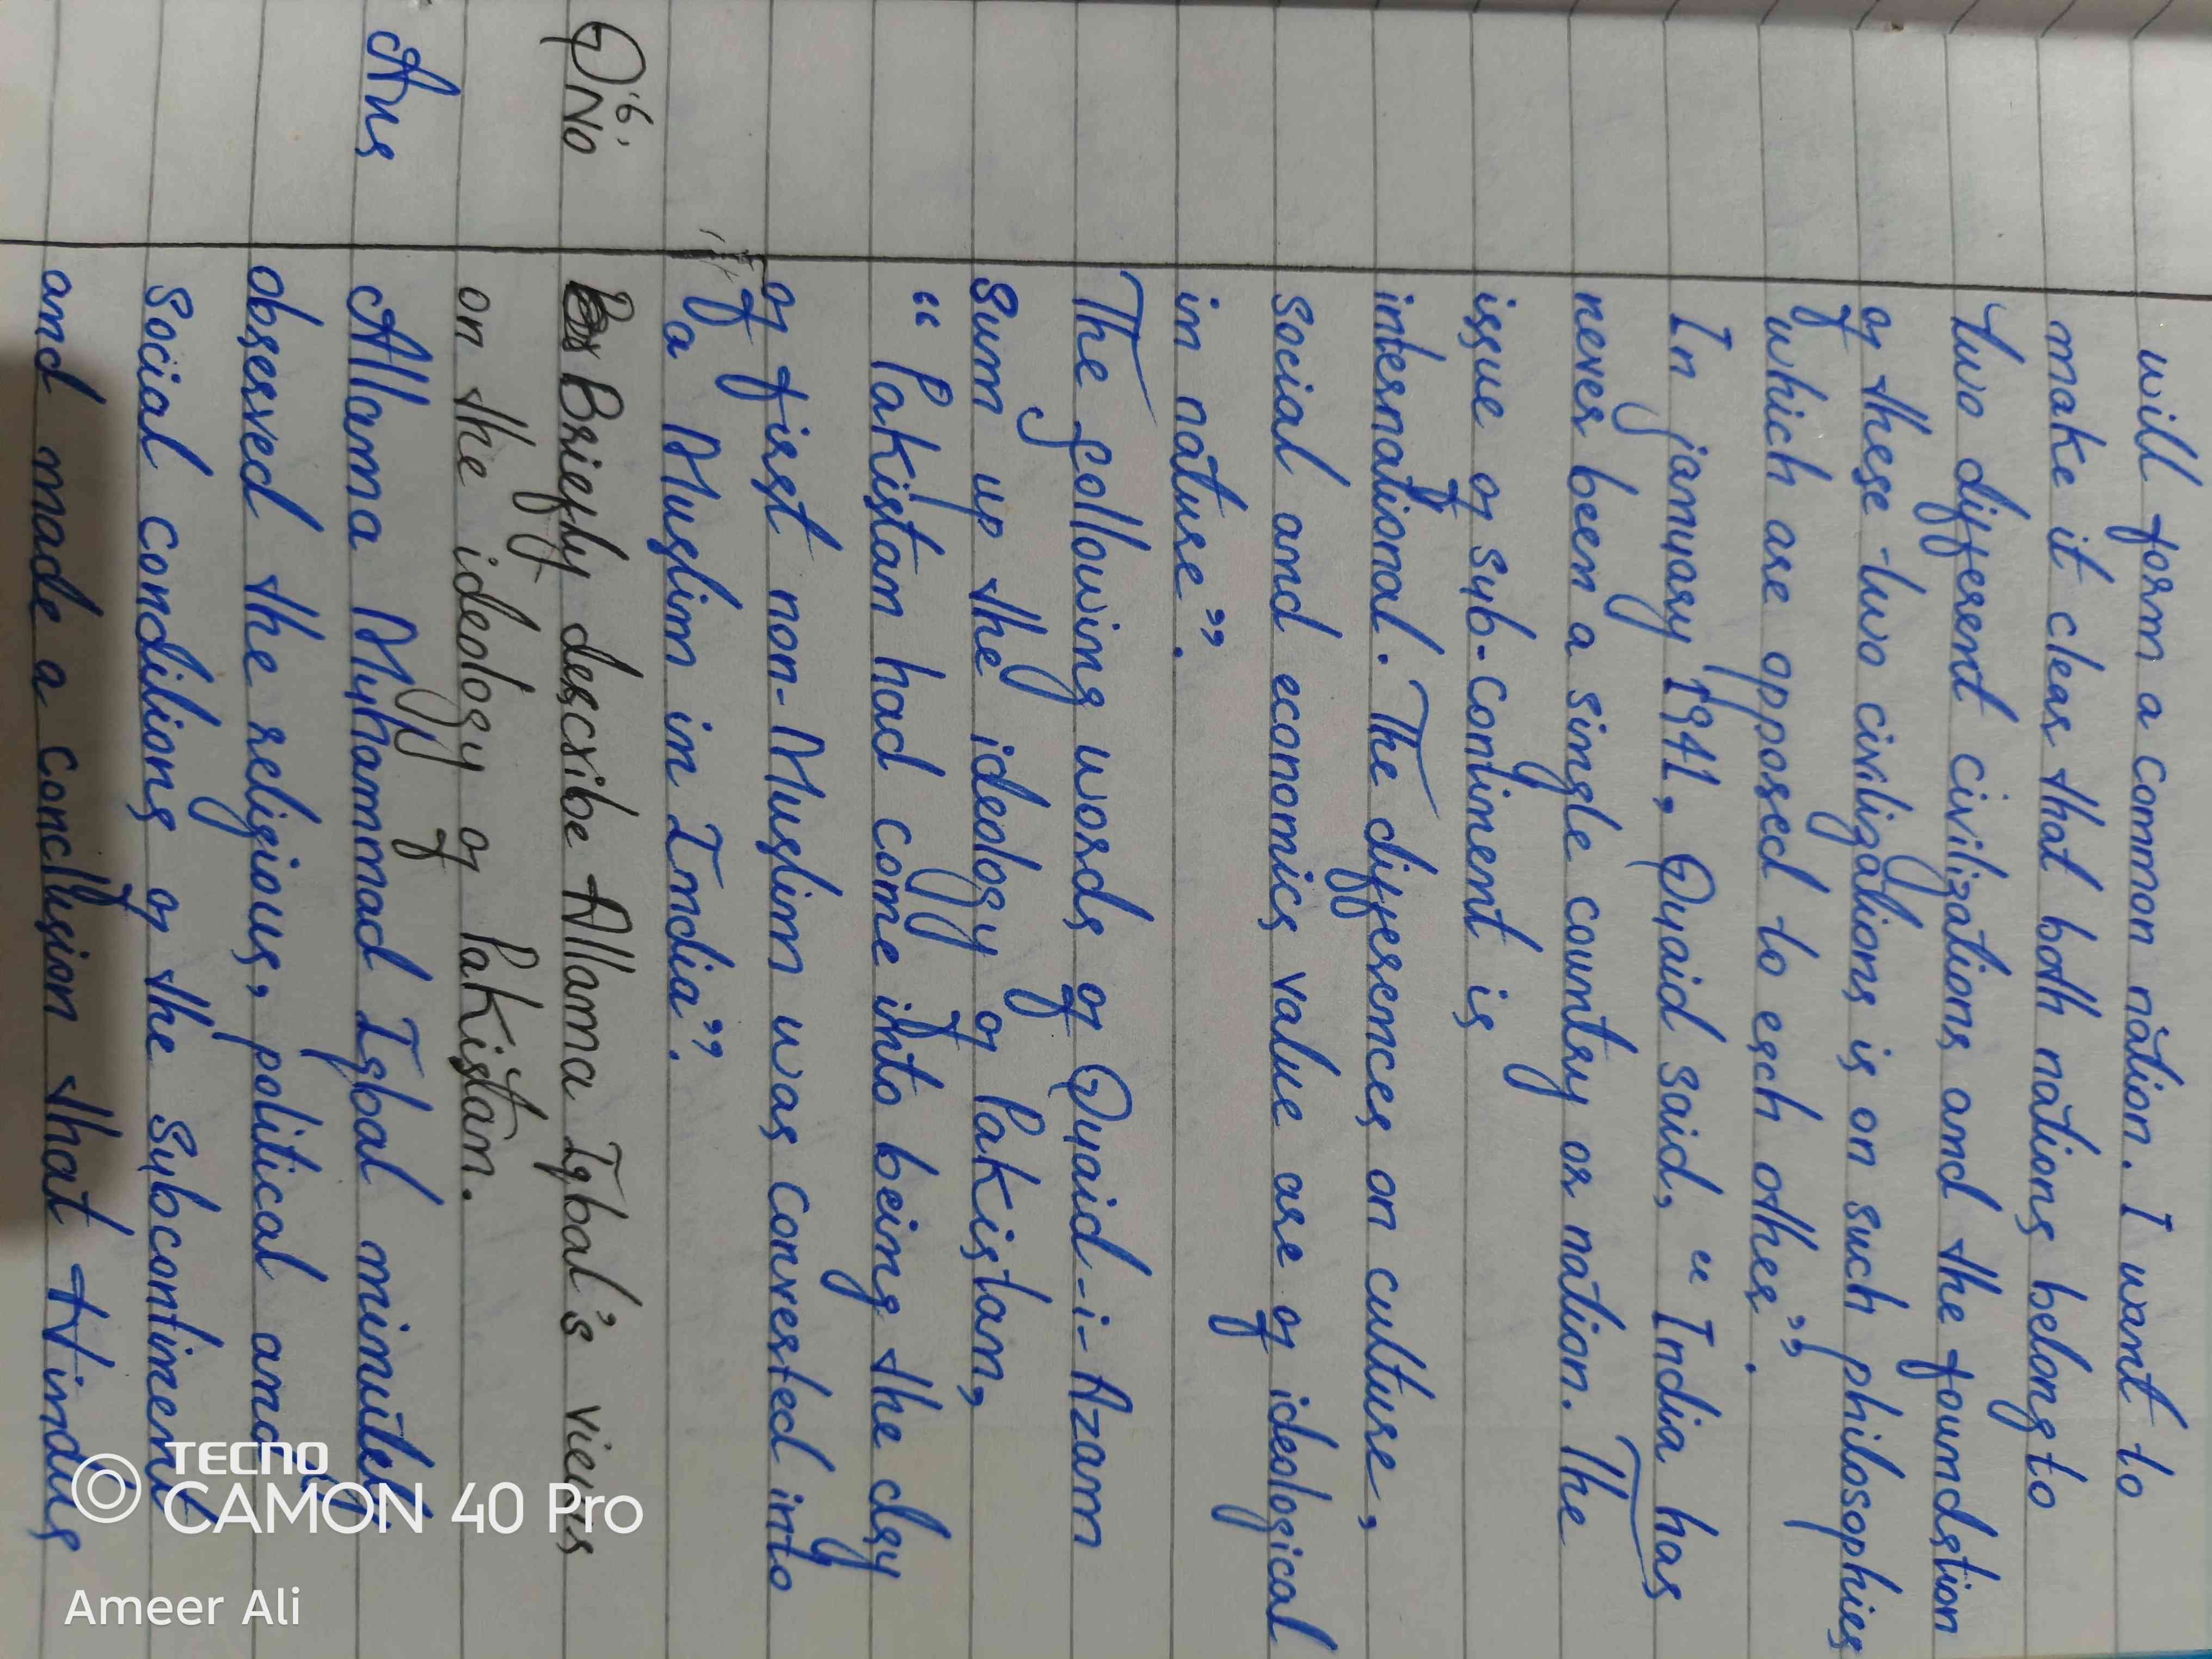 will form a common nation. I want to
make it clear that both nations belong to
two different civilizations and the foundation
of these two civilizations is on such philosophies
which are opposed to each other”.
In january 1941, Quaid said, “ India has
never been a single country or nation. The
issue of sub-continent is
international. The differences on culture,
social and economics value are of ideological
in nature”.
The following words of Quaid-i-Azam
sum up the ideology of Pakistan,
“ Pakistan had come into being the day
of first non-Muslim was converted into
a Muslim in India”.
Q No 6. Briefly describe Allama Iqbal's views
on the ideology of Pakistan.
Ans Allama Muhammad Iqbal minutely
observed the religious, political and
social conditions of the subcontinent
and made a conclusion that Hindus
TECNO
CAMON 40 Pro
Ameer Ali